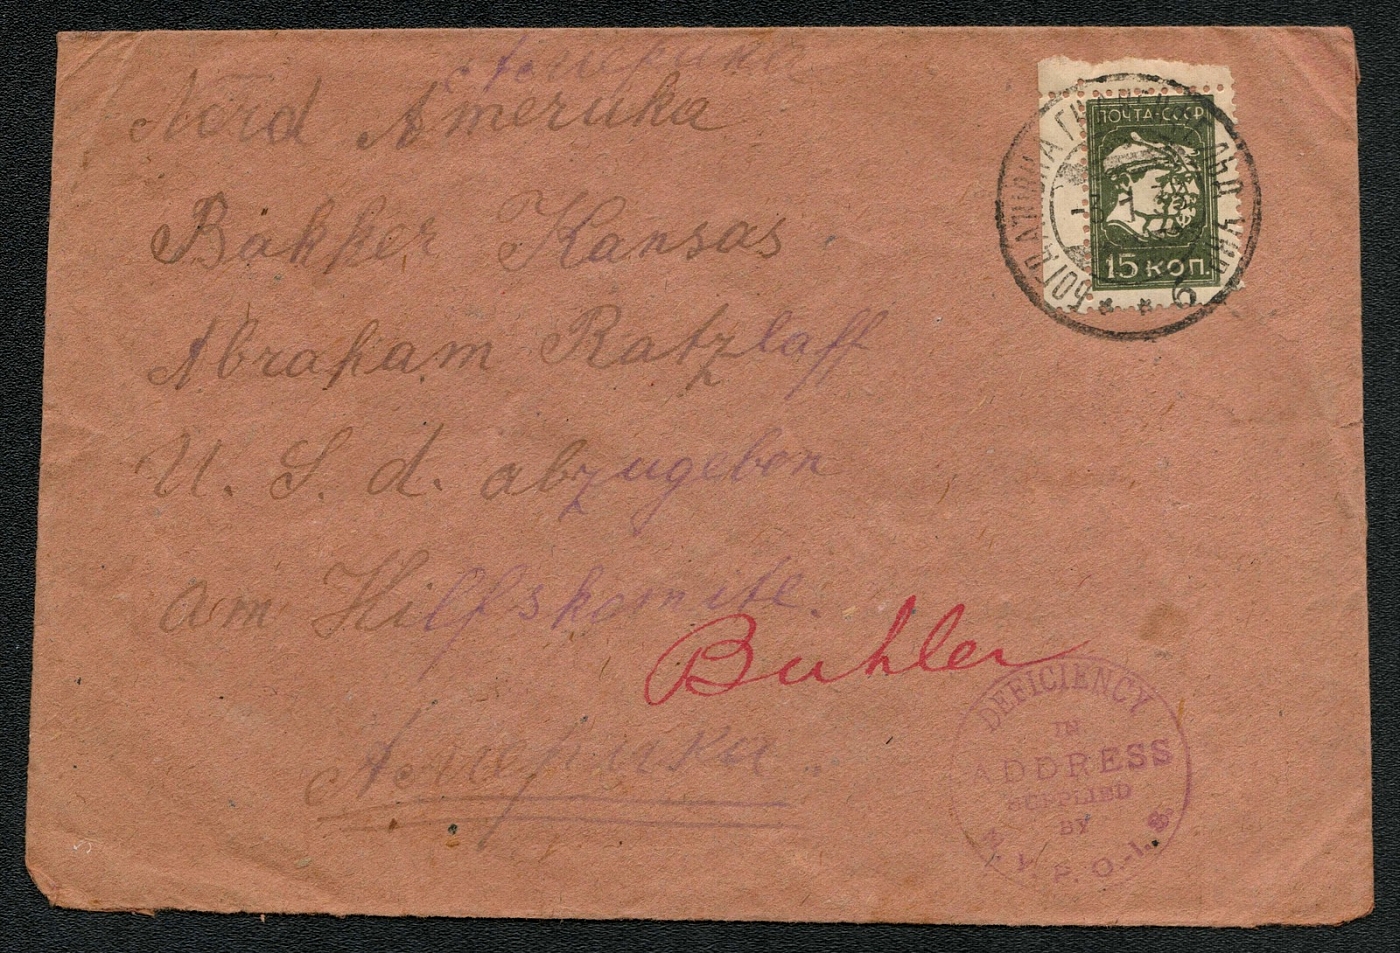 Америка
Nord Ameruka
Bakker Kansas
Abraham Ratzlaff
U. S. d. abzugeben
am Hilfskomite.
Buhler
Америка.
ПОЧТА-СССР
15 КОП.
DEFICIENCY
IN
ADDRESS
SUPPLIED
BY
N. Y. P. O.-I. S.